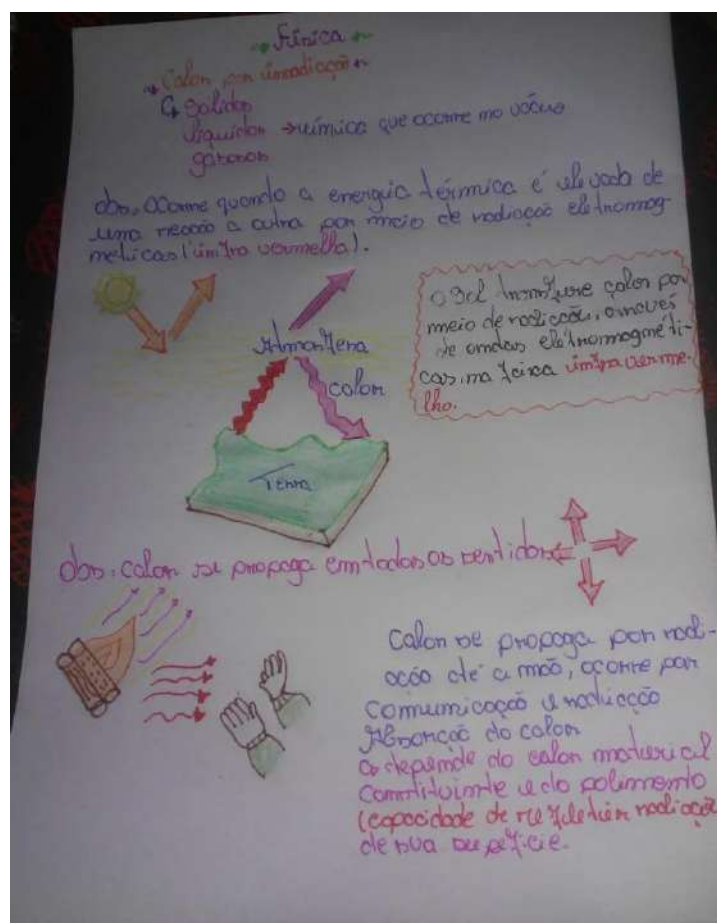 Física
Calor por irradiação
Sólidos
líquidos → única que ocorre no vácuo
gasosos
obs. Ocorre quando a energia térmica é
uma região a outra por meio de radiação eletromag-
néticas (infra vermelha).
O Sol transfere calor por
meio de radiação, através
de ondas eletromagnéti-
cas, na faixa infravermel-
lho.
Atmosfera
calor
Terra
Obs: calor se propaga em todos os sentidos
Calor se propaga por radi-
ação até a mão, ocorre por
comunicação e radiação
Absorção do calor
depende do calor material
constituinte e do polimento
(capacidade de refletir radiação
de sua superfície.